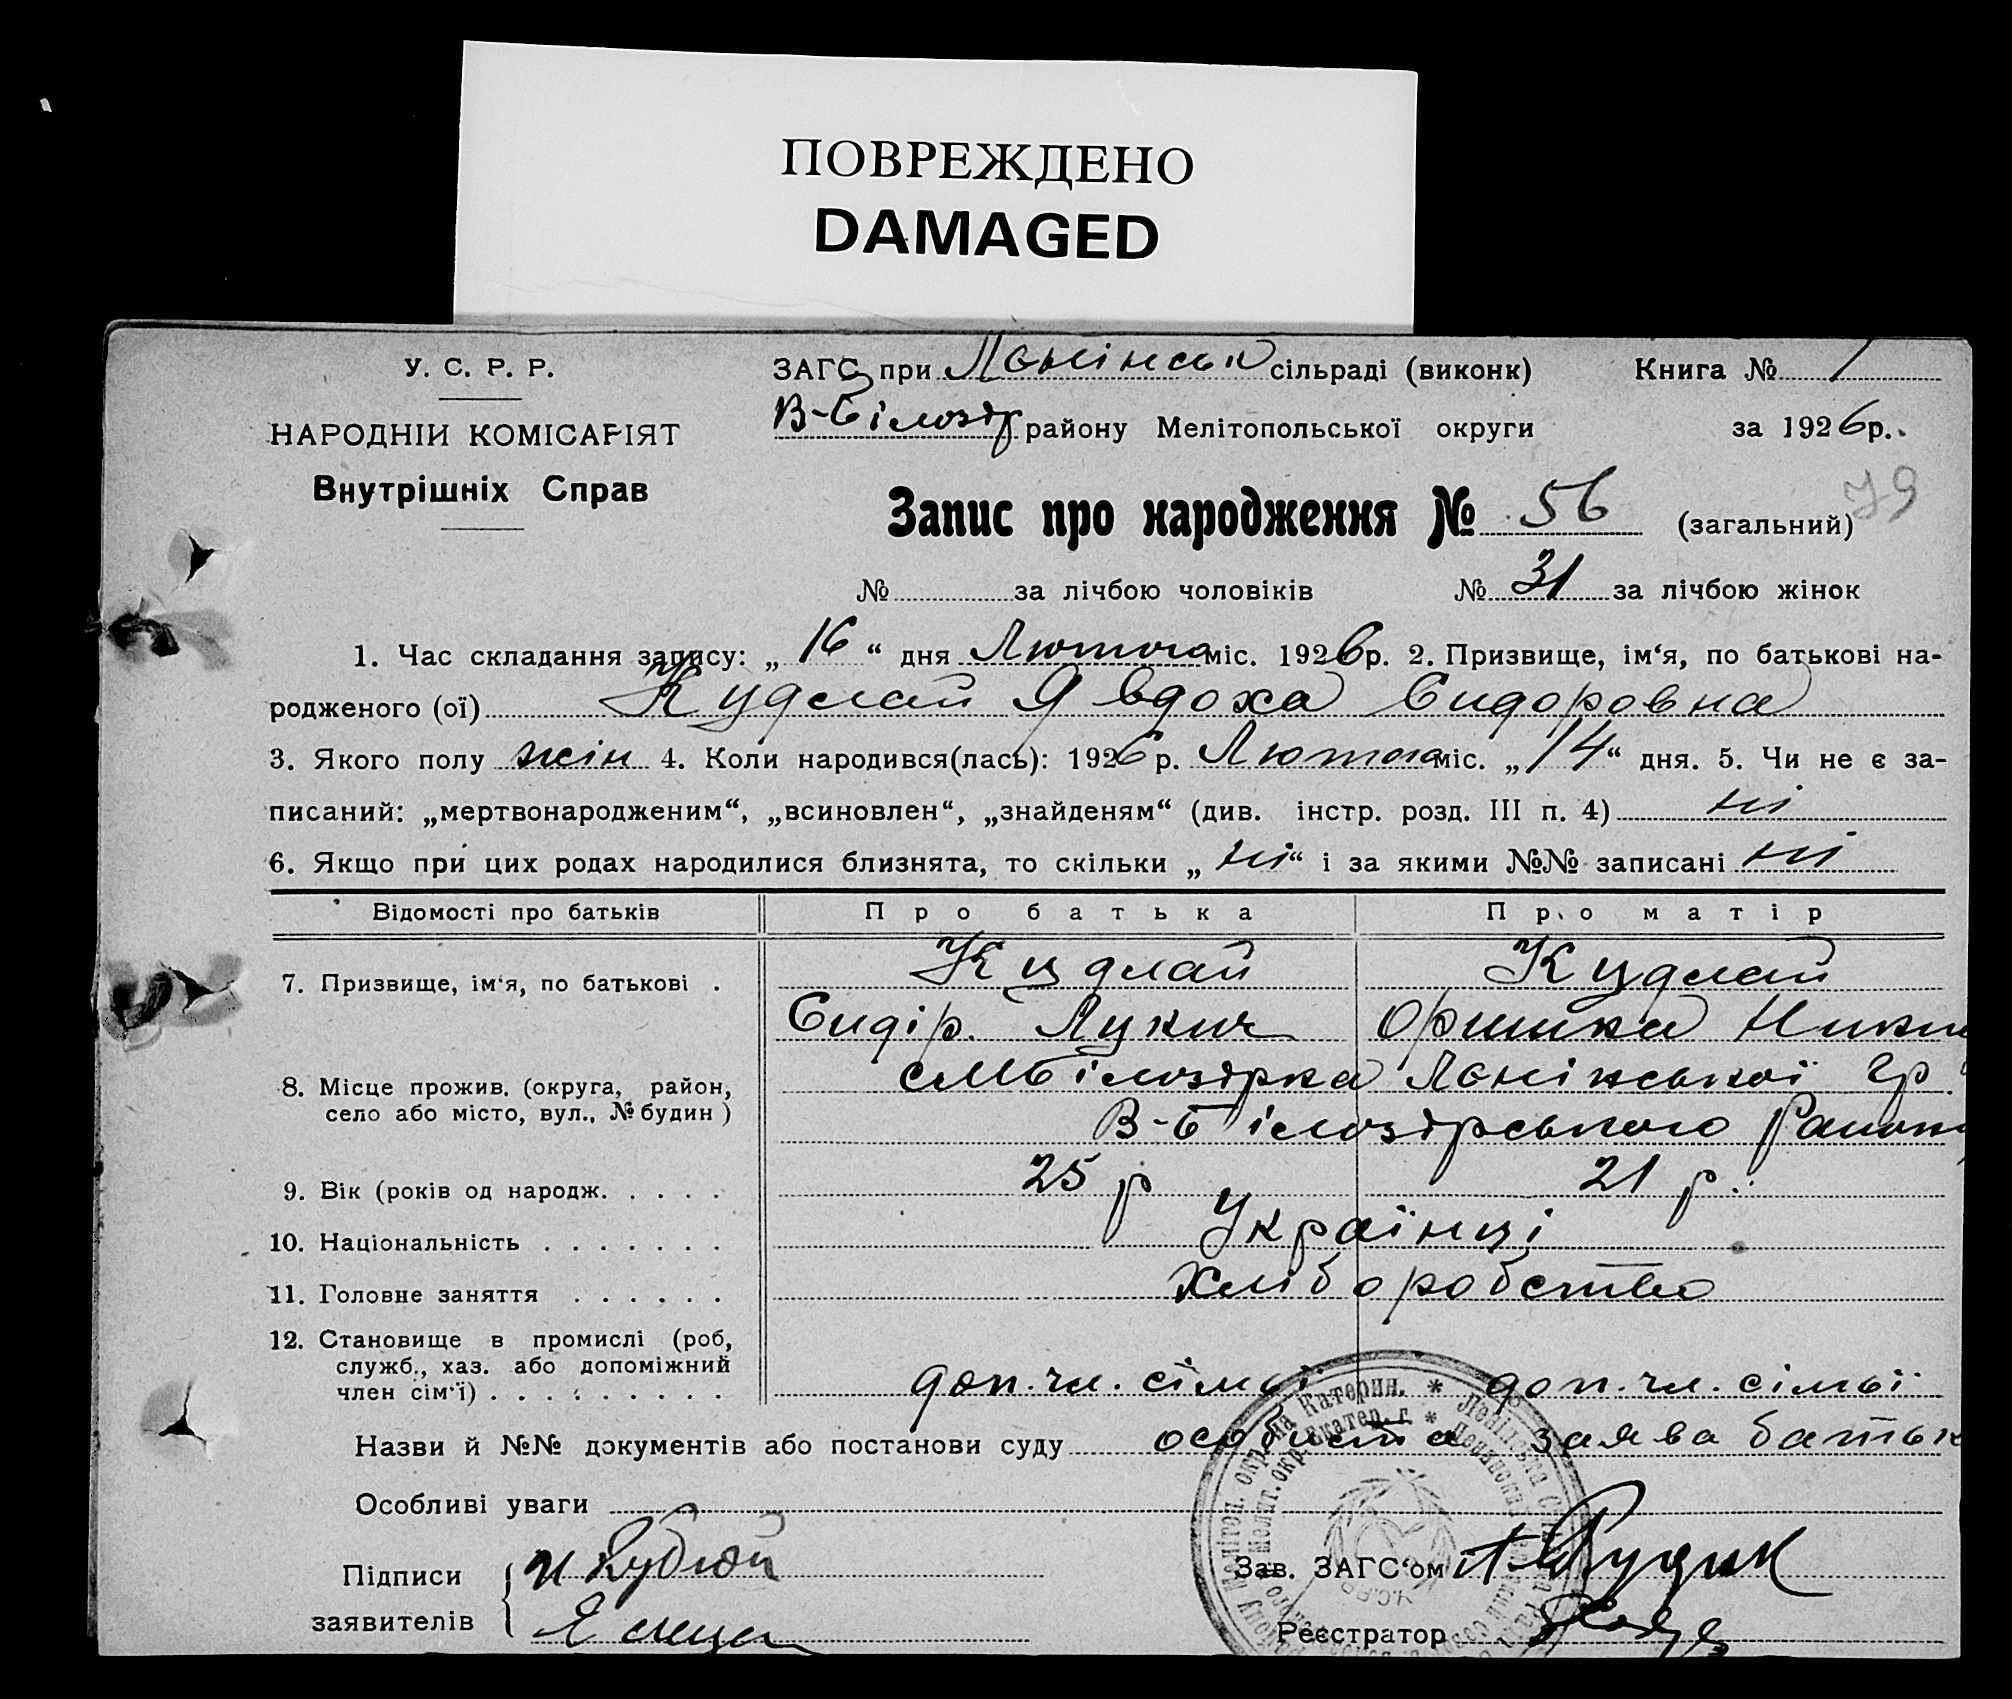 ПОВРЕЖДЕНО
DAMAGED
У. С. Р. Р.
ЗАГС при Ленінськ сільраді (виконк) Книга № 1
В-Білозір району Мелітопольської округи за 1926 р.
НАРОДНІЙ КОМІСАРІЯТ
Внутрішніх Справ
79
Запис про народження № 56 (загальний)
№ за лічбою чоловіків № 31 за лічбою жінок
1. Час складання запису: „ 16 “ дня Лютого міс. 1926 р. 2. Призвище, ім‘я, по батькові на-
родженого (ої) Кудлай Явдоха Сидоровна
3. Якого полу жін 4. Коли народився(лась): 1926 р. Лютого міс. „ 14 “ дня. 5. Чи не є за-
писаний: „мертвонародженим“, „всиновлен“, „знайденям“ (див. інстр. розд. III п. 4) ні
6. Якщо при цих родах народилися близнята, то скільки „ ні “ і за якими №№ записані ні
Відомості про батьків Про батька Про матір
7. Призвище, ім‘я, по батькові . Кудлай Кудлай
Сидір. Лукич Оришка
8. Місце прожив. (округа, район, Ленінської гр.
село або місто, вул., № будин ) В-Білозірського Району
9. Вік (років од народж. . . . . 25 р 21 р.
10. Національність . . . . . . . Українці
11. Головне заняття . . . . . . Хліборобство
12. Становище в промислі (роб,
служб., хаз. або допоміжний
член сім‘ї) . . . . . . . . . . доп. чл. сімьї доп. чл. сімьї
Назви й №№ документів або постанови суду особиста заява батьк
Особливі уваги
Підписи
заявителів
Зав. ЗАГС‘ом
Реєстратор